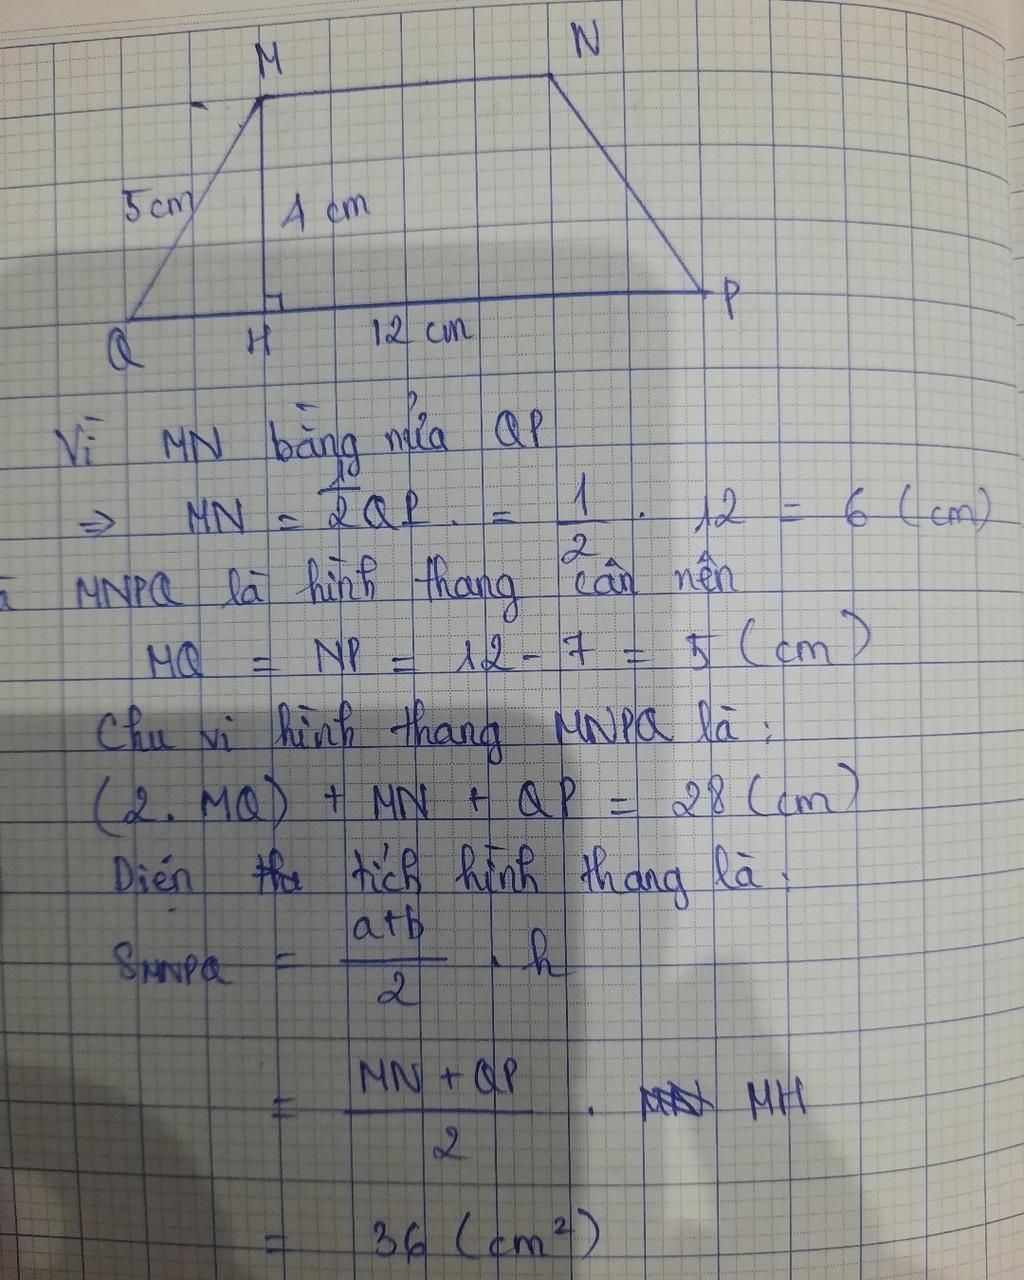 M N
5cm 4 cm
Q H 12 cm P
Vì MN bằng nửa QP
=> MN = 1/2 QP. = 1/2 . 12 = 6 (cm)
MNPQ là hình thang cân nên
MQ = NP = 12 - 7 = 5 (cm)
Chu vi hình thang MNPQ là:
(2. MQ) + MN + QP = 28 (cm)
Diện tích hình thang là:
SMNPQ = a+b/2 . h
= MN + QP/2 . MH
= 36 (cm²)